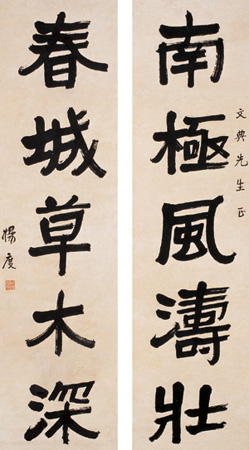 南極風濤壯
文典先生正
春城草木深
楊度